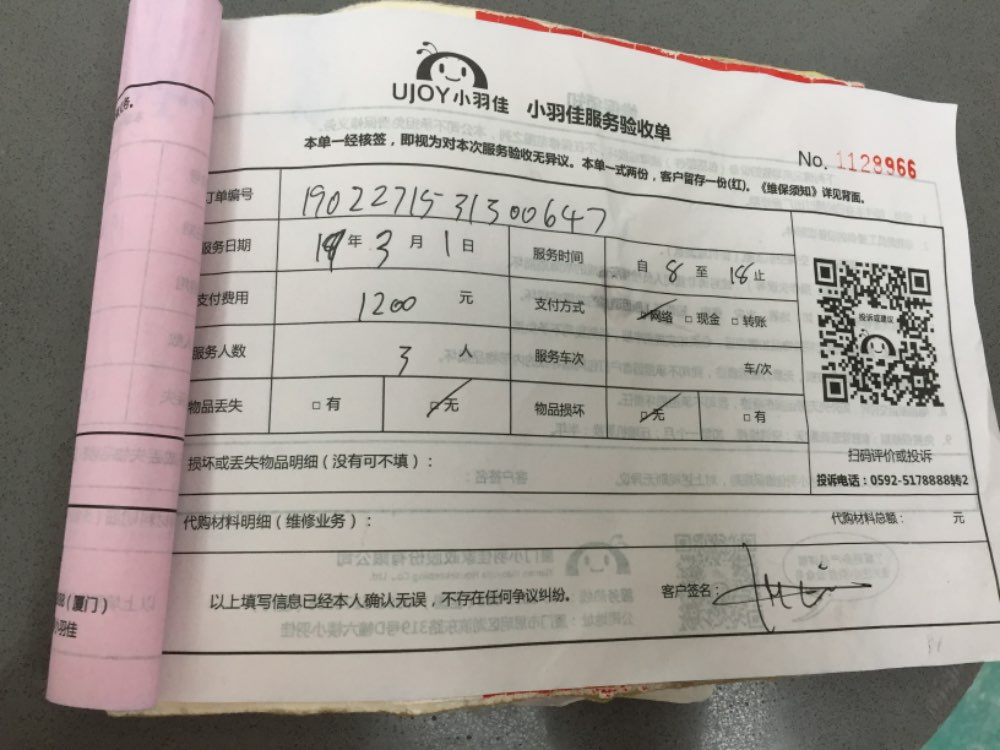 UJOY小羽佳 小羽佳服务验收单
本单一经核签，即视为对本次服务验收无异议。本单一式两份，客户留存一份(红)。《维保须知》详见背面。
No. 1128966
订单编号 1902271531300647
服务日期 19年3月1日 服务时间 自8至18止
支付费用 1200元 支付方式 □网络 □现金 □转账
服务人数 3人 服务车次 车/次
物品丢失 □有 □无 物品损坏 □无 □有
投诉或建议
扫码评价或投诉
投诉电话：0592-5178888转2
损坏或丢失物品明细（没有可不填）：
代购材料明细（维修业务）： 代购材料总额： 元
以上填写信息已经本人确认无误，不存在任何争议纠纷。 客户签名：
（厦门）
小羽佳